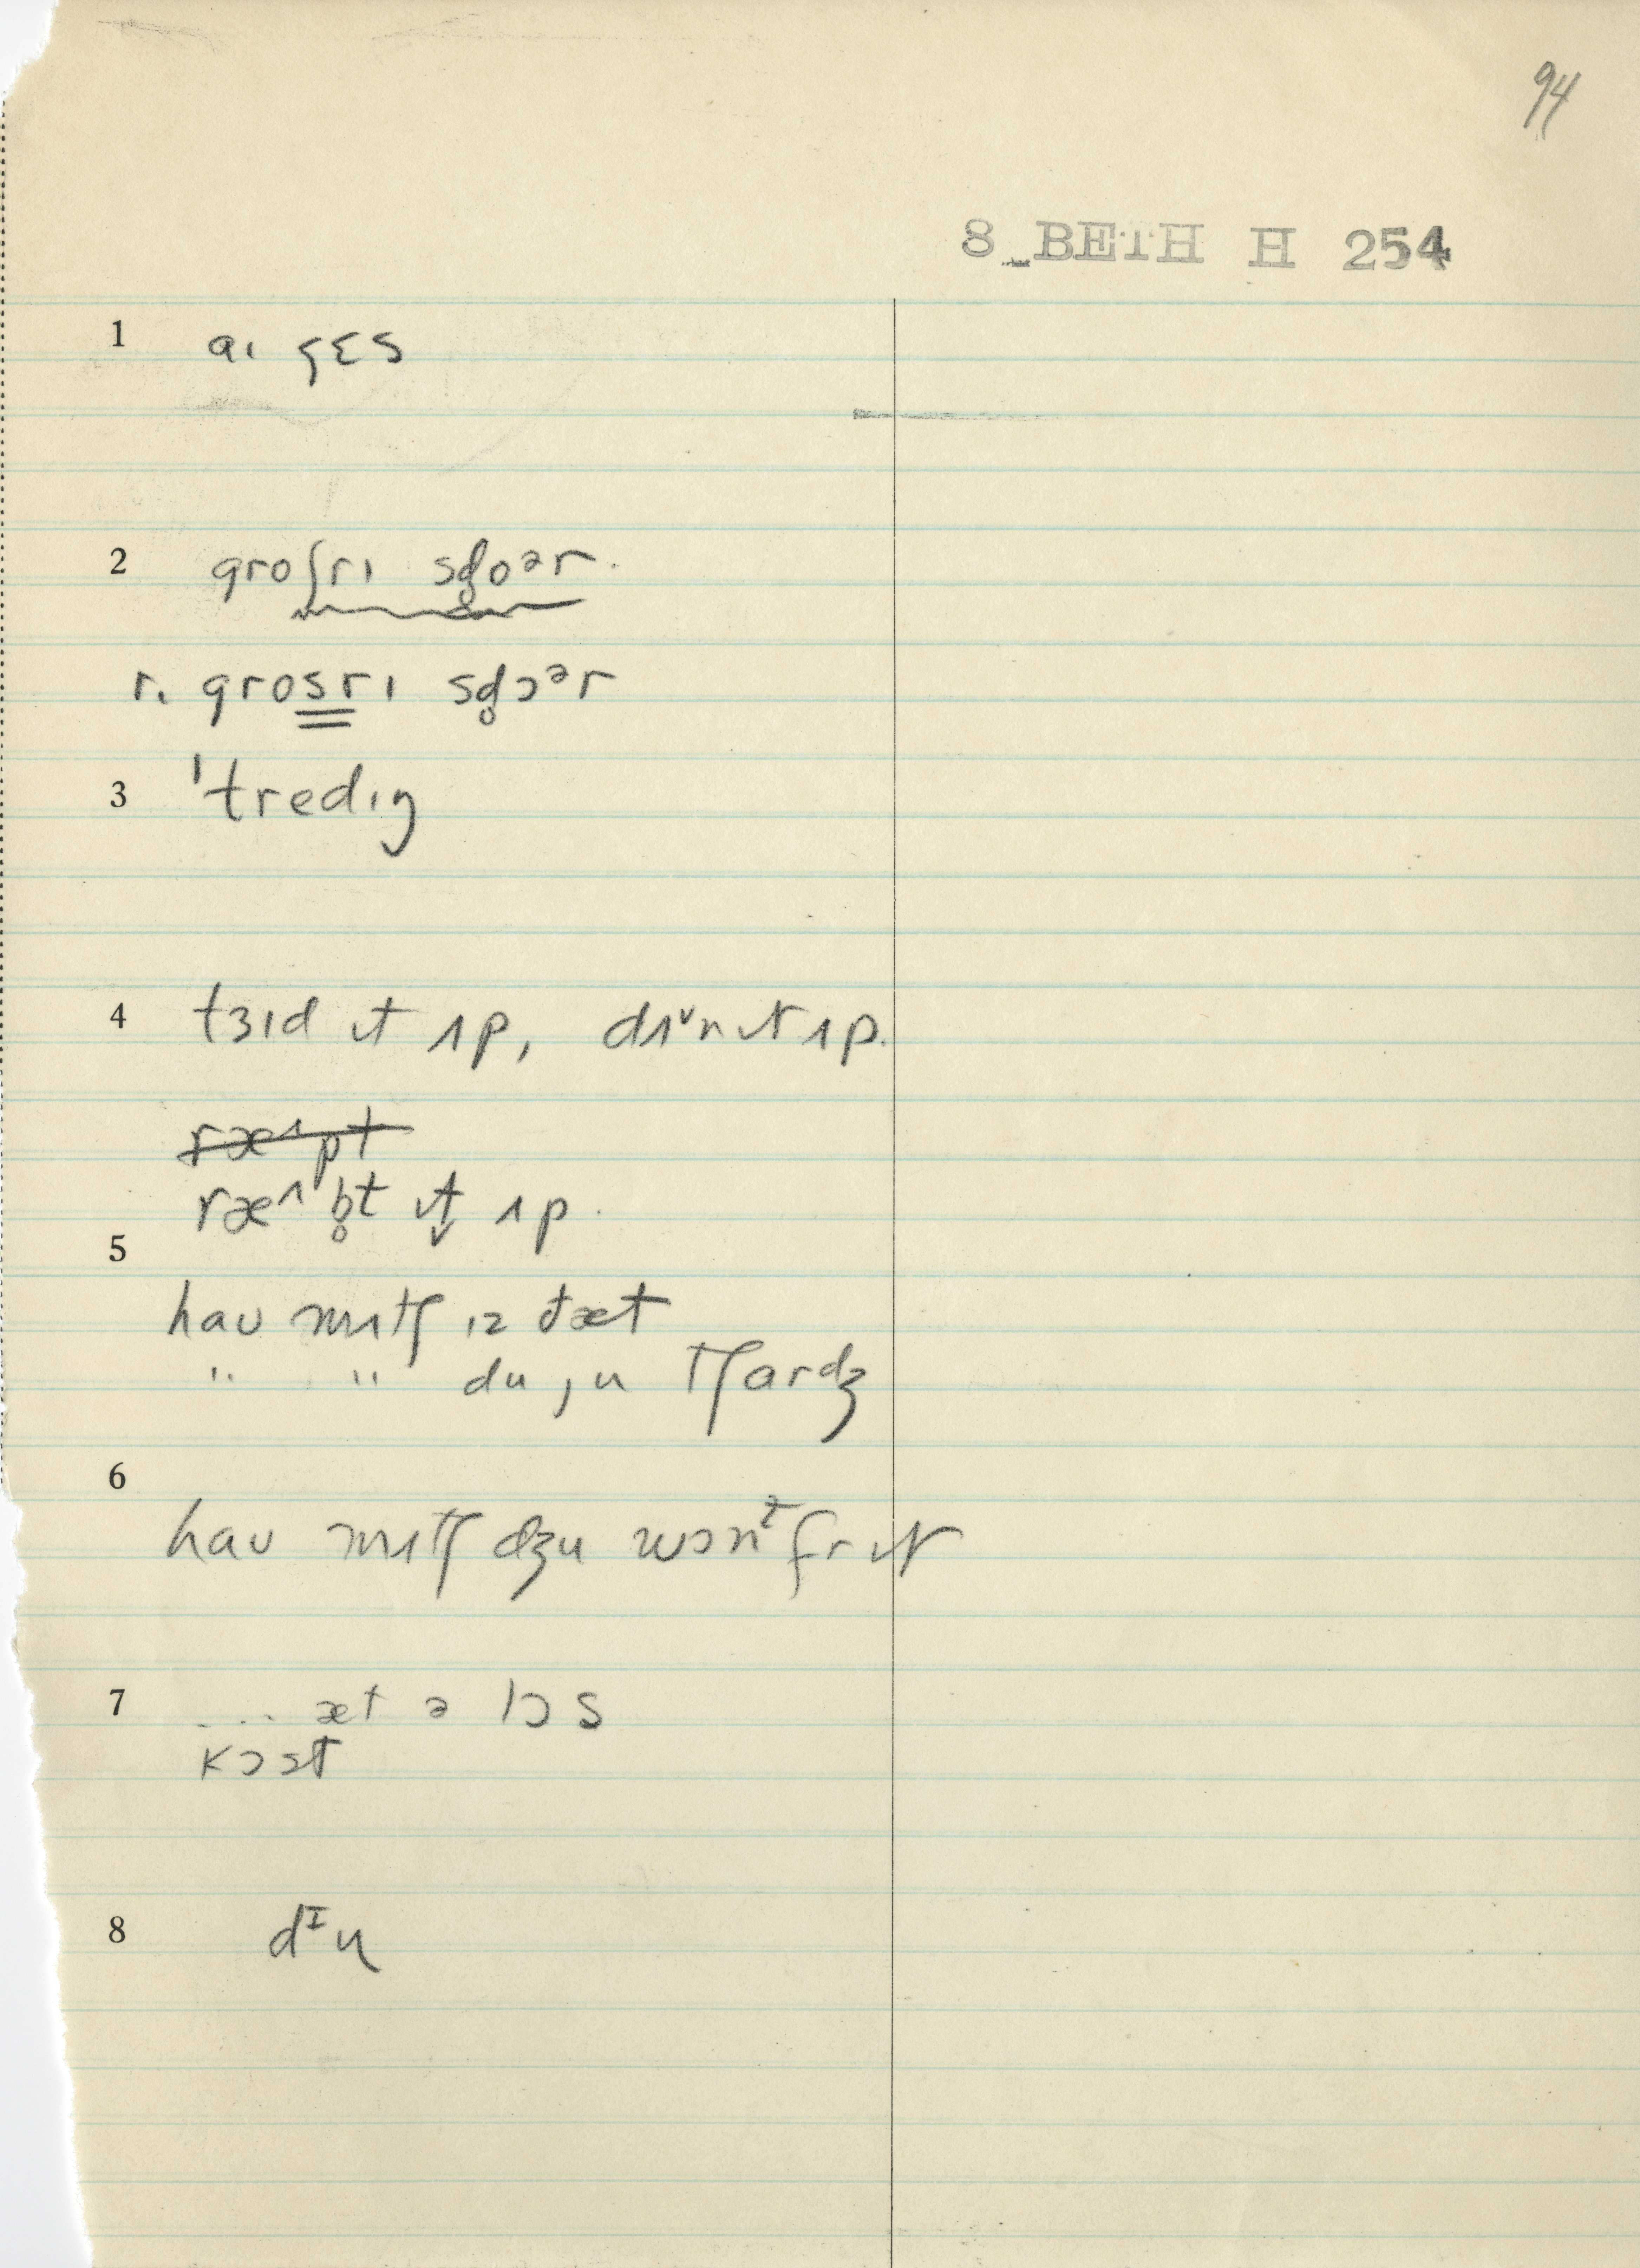 94
8_BETH H 254
1 aɪ ɡɛs
2 groʃrɪ sd̥oᵊr.
r. grosrɪ sd̥ɔᵊr
3 ˈtredɪŋ
4 tɜɪd ɪt ʌp, dʌᵛn ɪt ʌp.
ræᶺpt
ræᶺb̥t ɪt̬ ʌp.
5
hau mʌtʃ ɪz ðæt
" " du ju tʃardʒ
6
hau mʌtʃ dʒu wɔnᵗ fr ɪt
7 ... æt ə lɔs
kɔst
8 dᶦu